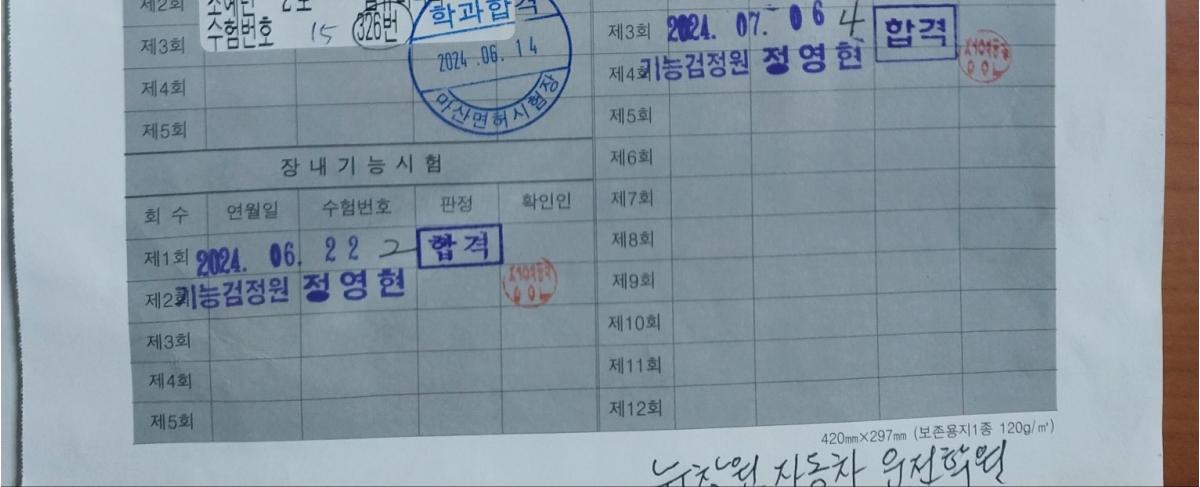 제2회
수험번호 15 326번
제3회
제4회
제5회
학과합격
2024.06.14
마산면허시험장
장내기능시험
회수 연월일 수험번호 판정 확인인
제1회 2024. 06. 22 2 합격
제2회 기능검정원 정영현
제3회
제4회
제5회
제3회 2024. 07. 06 4 합격
제4회 기능검정원 정영현
제5회
제6회
제7회
제8회
제9회
제10회
제11회
제12회
420㎜×297㎜ (보존용지1종 120g/㎡)
뉴창원 자동차 운전학원